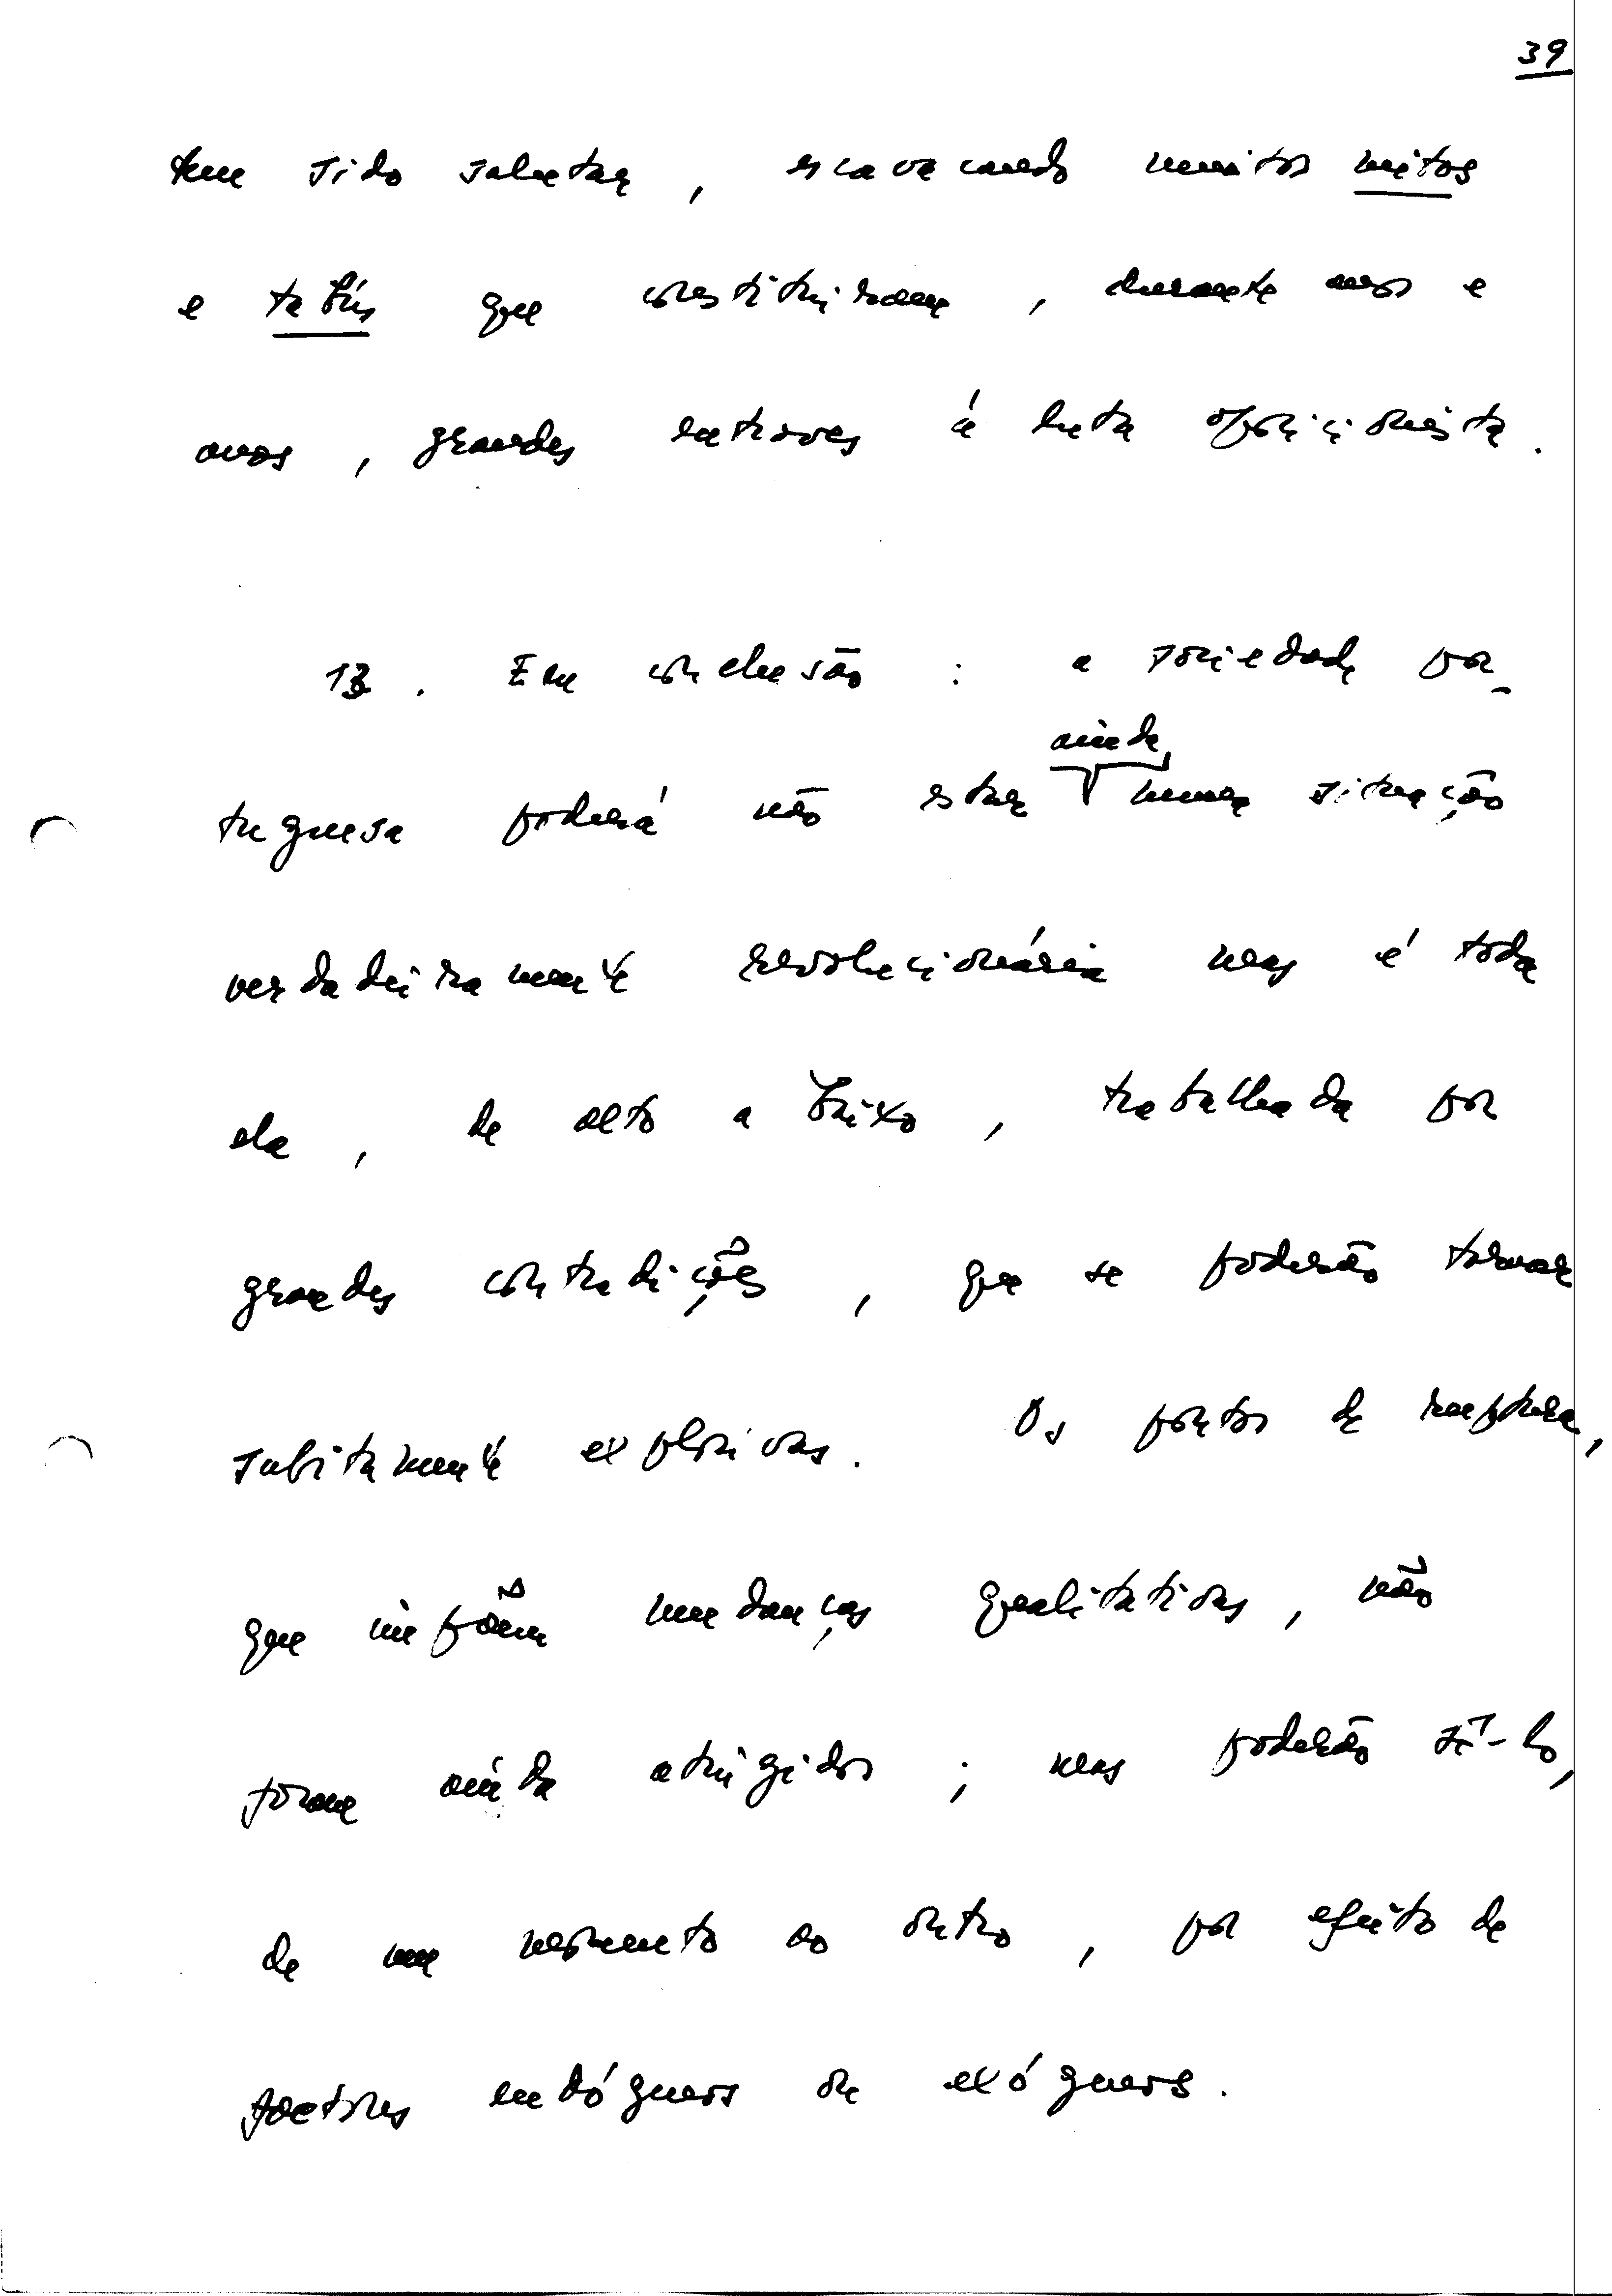 39
tem sido salutar, escavacando muitos mitos
e tabús que constituiram, durante anos e
anos, grandes entraves à luta oposicionista.
13. Em conclusão: a sociedade por-
ainda,
tuguesa poderá não estar numa situação
verdadeiramente revolucionária mas é toda
ela, de alto a baixo, trabalhada por
grandes contradições, que se poderão tornar
subitamente explosivas. Os pontos de ruptura,
que impõem mudanças qualitativas, não
foram ainda atingidos; mas poderão sê-lo,
de um momento ao outro, por efeito de
factores endógenos ou exógenos.